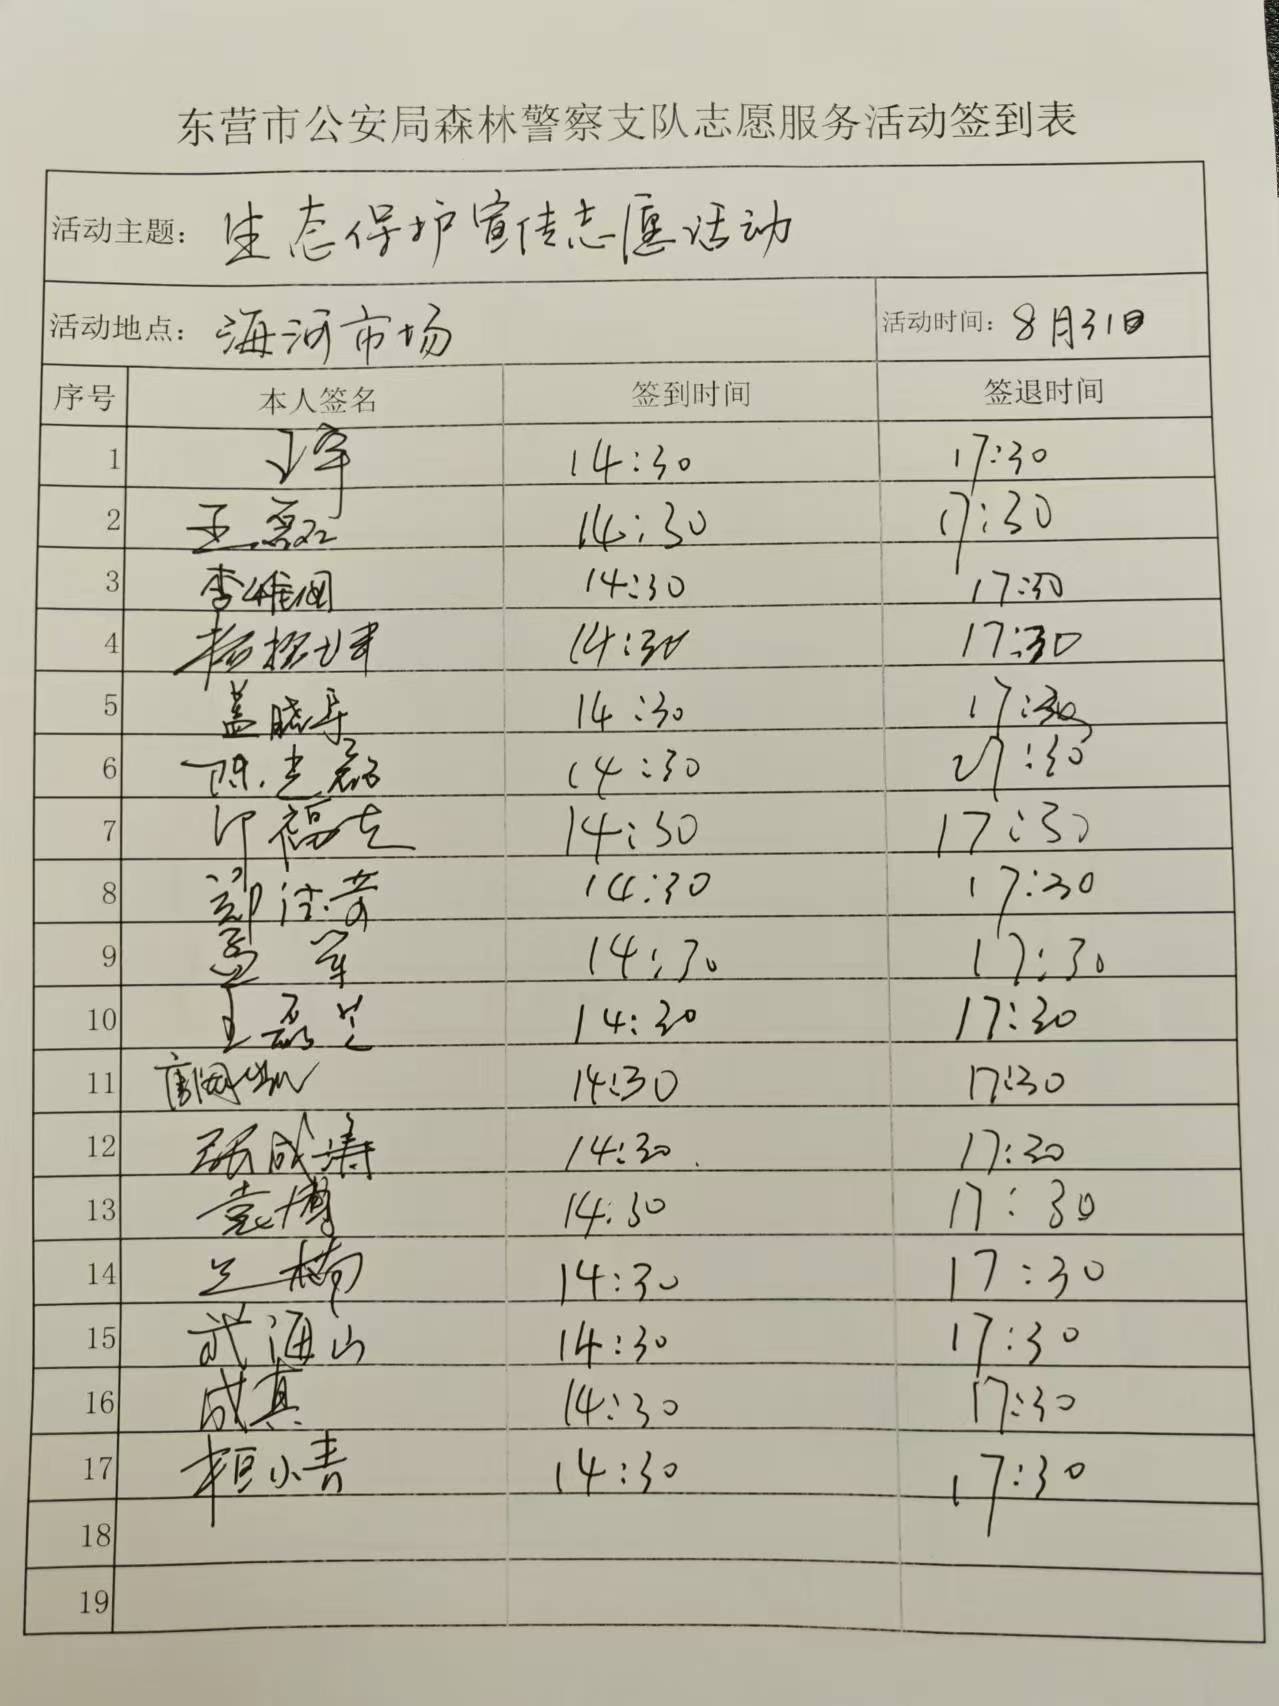 东营市公安局森林警察支队志愿服务活动签到表
活动主题: 生态保护宣传志愿活动
活动地点: 海河市场 活动时间: 8月31日
序号 本人签名 签到时间 签退时间
1 14:30 17:30
2 王磊 14:30 17:30
3 李维国 14:30 17:30
4 14:30 17:30
5 盖晓军 14:30 17:30
6 陈光磊 14:30 17:30
7 14:30 17:30
8 14:30 17:30
9 孟军 14:30 17:30
10 王磊 14:30 17:30
11 14:30 17:30
12 张成涛 14:30 17:30
13 袁博 14:30 17:30
14 兰楠 14:30 17:30
15 武海山 14:30 17:30
16 成真 14:30 17:30
17 桓小青 14:30 17:30
18
19